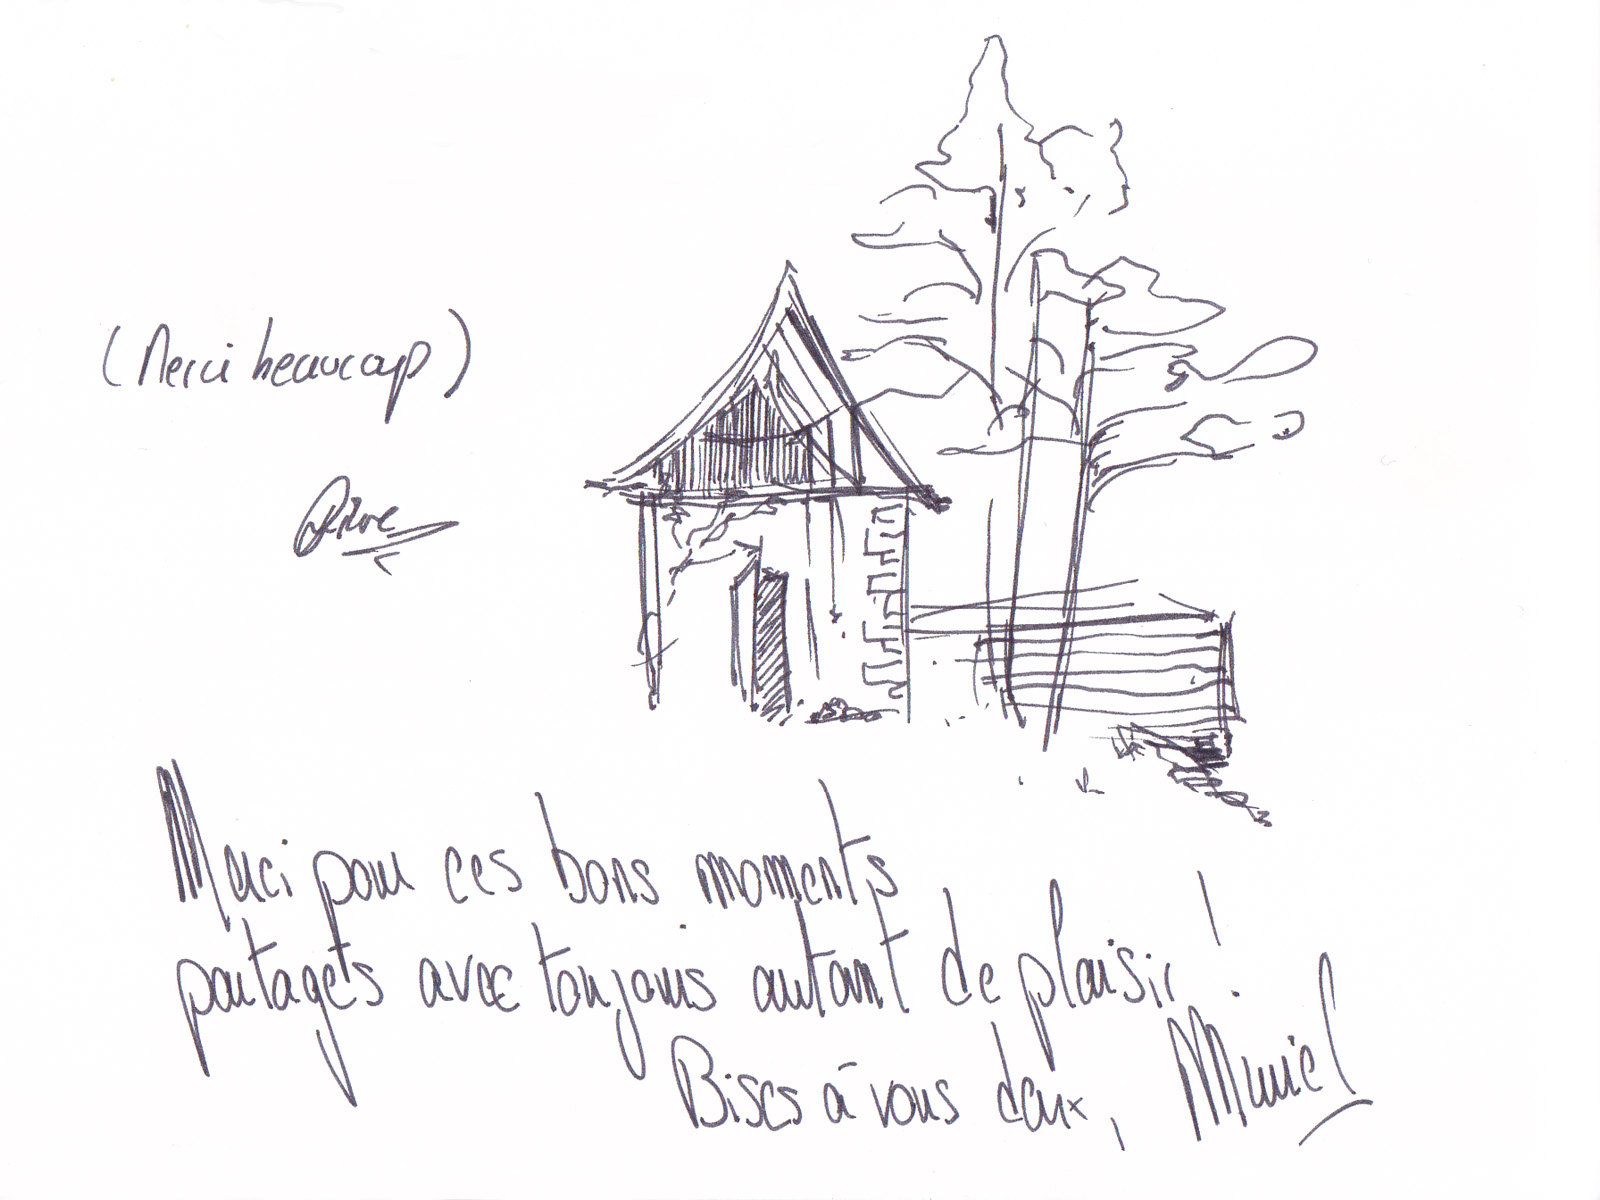 (Merci beaucoup)
Merci pour ces bons moments
partagés avec toujours autant de plaisir !
Bises à vous deux, Muriel